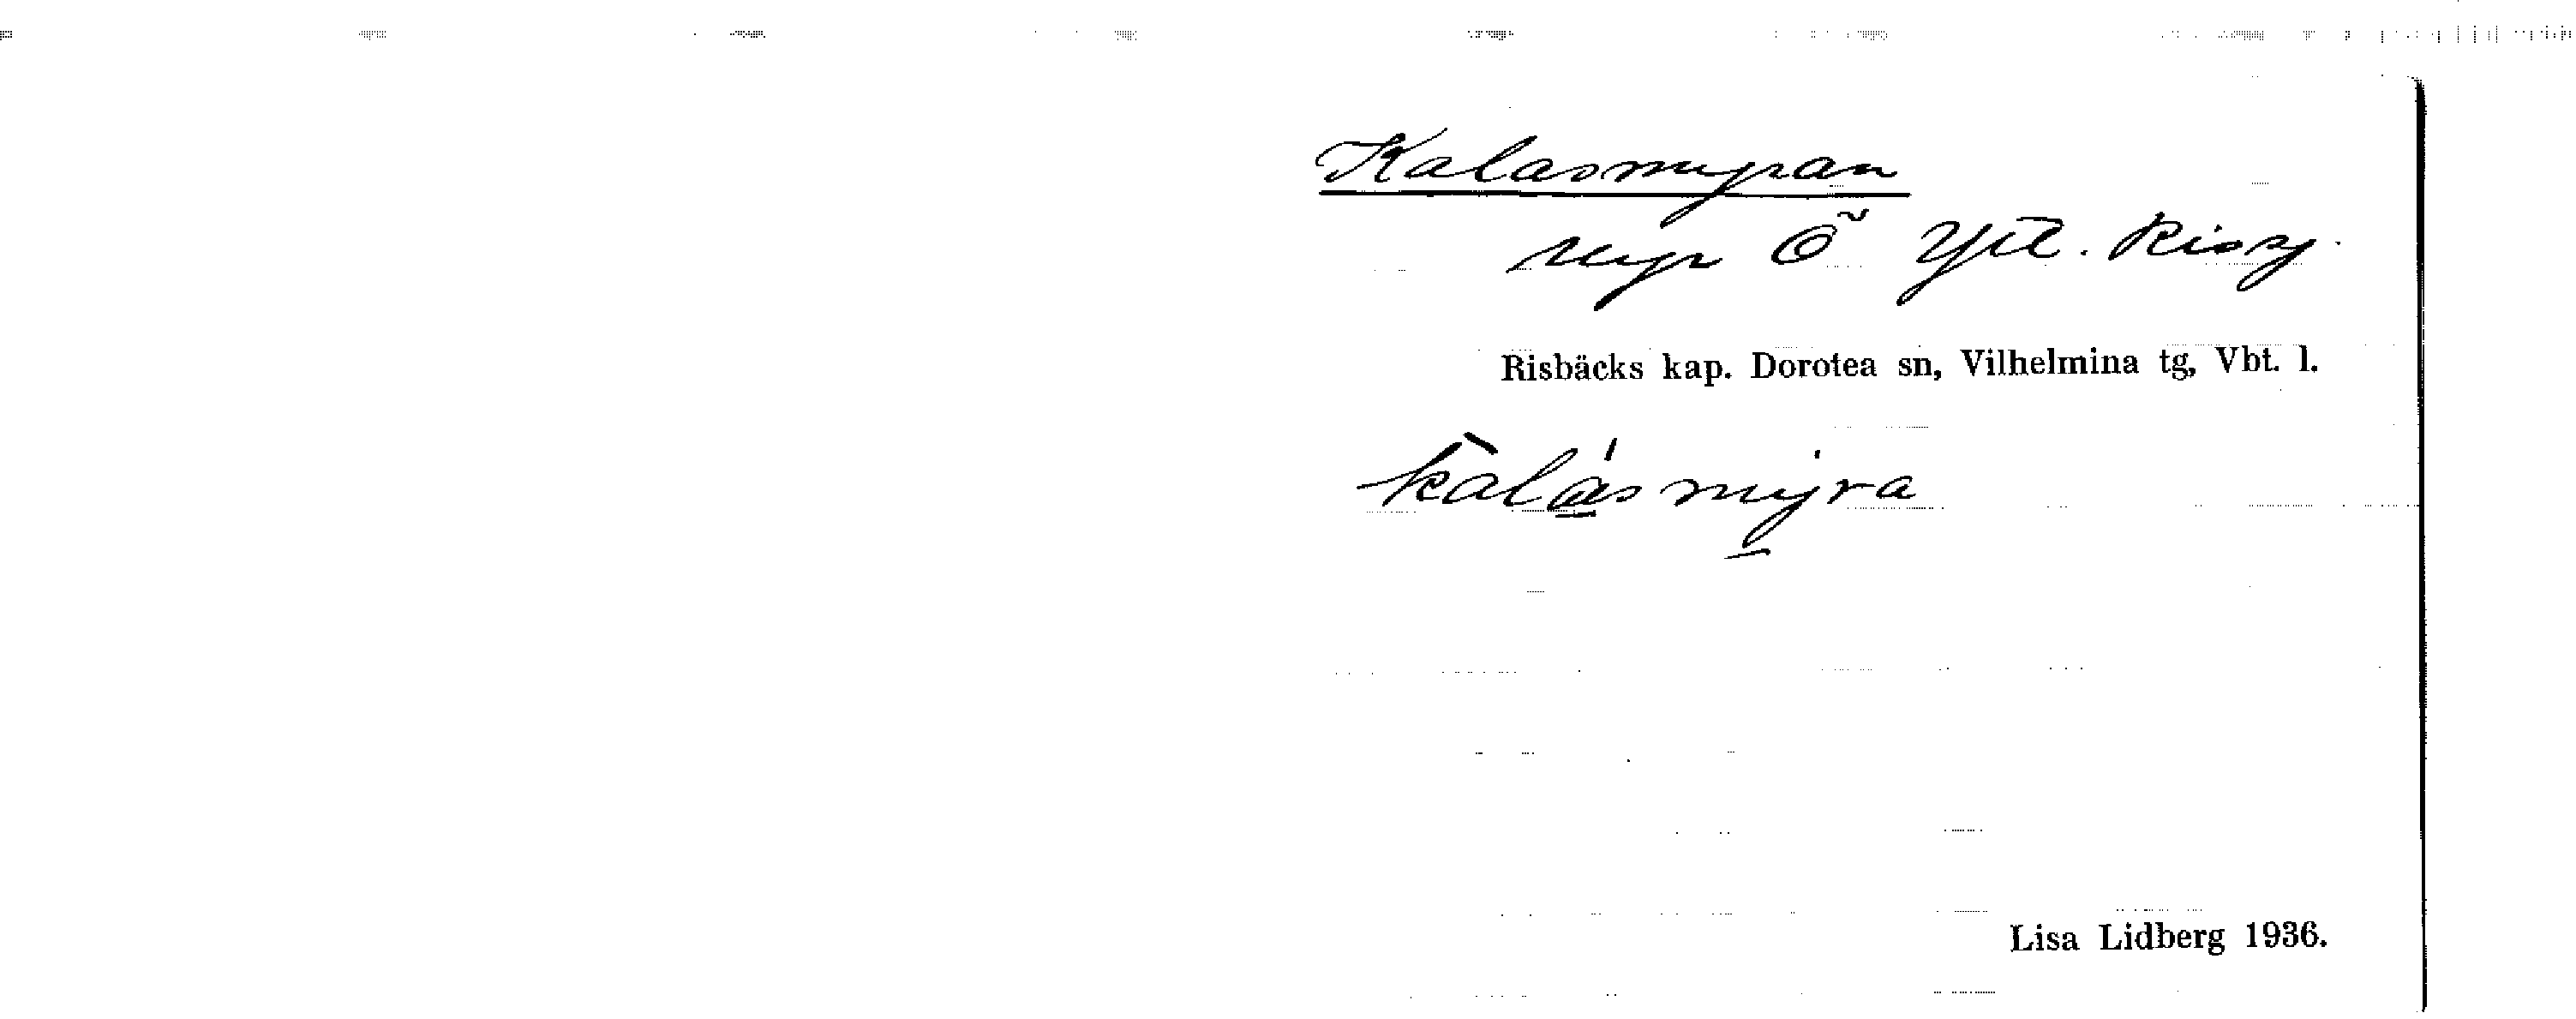 Kalasmyran
myr Ö Ytt. Rissj.
Risbäcks kap. Dorotea sn, Vilhelmina tg, Vbt. l.
kalásmýra
Lisa Lidberg 1936.